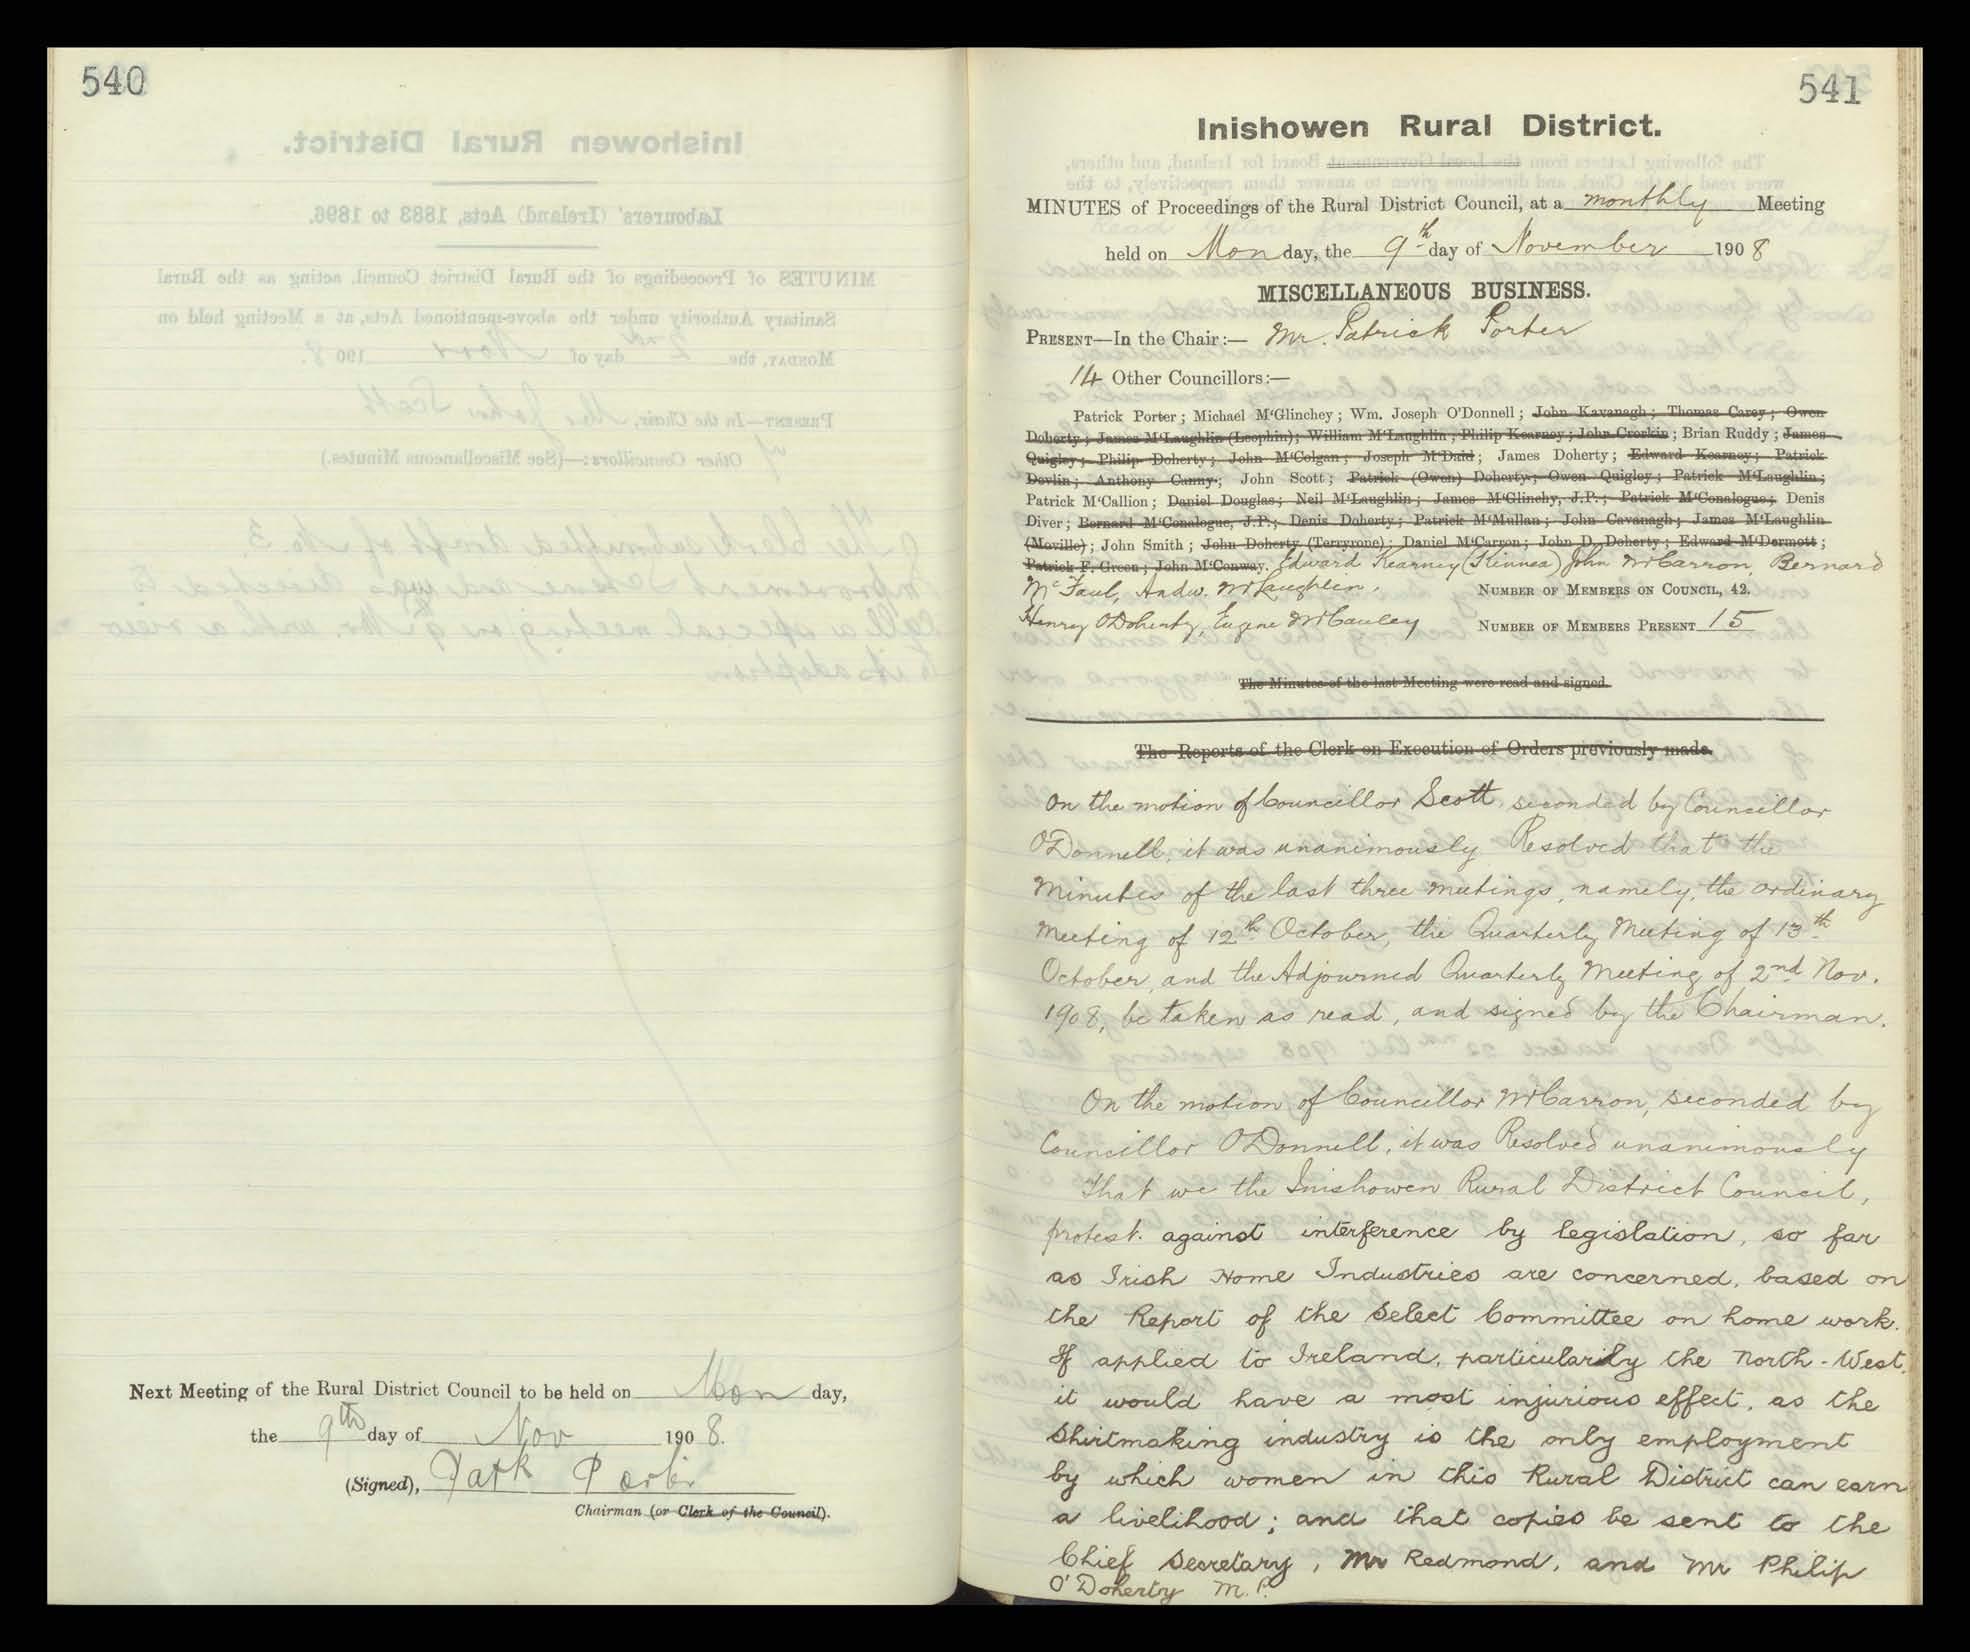 540
Next Meeting of the Rural District Council to be held on Mon day,
the 9th day of Nov 1908.
(Signed), Patk Porter
Chairman (or Clerk of the Council).
541
Inishowen Rural District.
MINUTES of Proceedings of the Rural District Council, at a monthly Meeting
held on Monday, the 9th day of November 1908
MISCELLANEOUS BUSINESS.
PRESENT—In the Chair:— Mr. Patrick Porter
14 Other Councillors:—
Patrick Porter; Michael M'Glinchey; Wm. Joseph O'Donnell; John Kavanagh; Thomas Carey; Owen
Doherty; James M'Laughlin (Leophin); William M'Laughlin; Philip Kearney; John Crorkin; Brian Ruddy; James
Quigley; Philip Doherty; John M'Colgan; Joseph M'Daid; James Doherty; Edward Kearney; Patrick
Devlin; Anthony Canny; John Scott; Patrick (Owen) Doherty; Owen Quigley; Patrick M'Laughlin;
Patrick M'Callion; Daniel Douglas; Neil M'Laughlin; James M'Glinchy, J.P.; Patrick M'Conalogue; Denis
Diver; Bernard M'Conalogue, J.P.; Denis Doherty; Patrick M'Mullan; John Cavanagh; James M'Laughlin
(Moville); John Smith; John Doherty (Terryrone); Daniel M'Carron; John D. Doherty; Edward M'Dermott;
Patrick F. Green; John M'Conway. Edward Kearney (Kinnea) John McCarron, Bernard
McFaul, Andw. McLaughlin,
NUMBER OF MEMBERS ON COUNCIL, 42.
Henry O'Doherty, Eugene McCauley
NUMBER OF MEMBERS PRESENT 15
The Minutes of the last Meeting were read and signed.
The Reports of the Clerk on Execution of Orders previously made.
On the motion of Councillor Scott, seconded by Councillor
O'Donnell, it was unanimously Resolved that the
Minutes of the last three meetings, namely, the ordinary
Meeting of 12th October, the Quarterly Meeting of 13th
October, and the Adjourned Quarterly Meeting of 2nd Nov.
1908, be taken as read, and signed by the Chairman.
On the motion of Councillor McCarron, seconded by
Councillor O'Donnell, it was Resolved unanimously
That we the Inishowen Rural District Council,
protest against interference by legislation, so far
as Irish Home Industries are concerned, based on
the Report of the Select Committee on home work.
If applied to Ireland, particularily the North-West,
it would have a most injurious effect, as the
Shirtmaking industry is the only employment
by which women in this Rural District can earn
a livelihood; and that copies be sent to the
Chief Secretary, Mr Redmond, and Mr Philip
O'Doherty M.P.